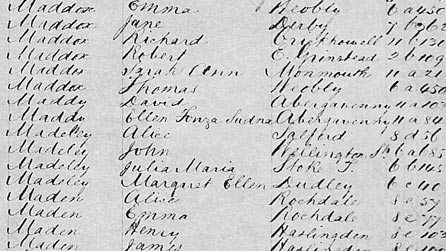 Maddox Emma Weobly 6 a 450
Maddox Jane Derby 7 b
Maddox Richard Crickhowell 11 b
Maddox Robert E. Grinstead 2 b 109
Maddox Sarah Ann Monmouth 11 a 21
Maddox Thomas Weobly 6 a 450
Maddy David Abergavenny 11 a
Maddy Ellen Abergavenny 11 a 84
Madeley Alice Salford 8 d
Madeley John Wellington 6 a
Madeley Julia Maria Stoke T. 6 b 145
Madeley Margaret Ellen Dudley 6 c 40
Maden Alice Rochdale 8 e 57
Maden Emma Rochdale 8 e
Maden Henry Haslingden 8 e 103
Maden James Haslingden 8 e